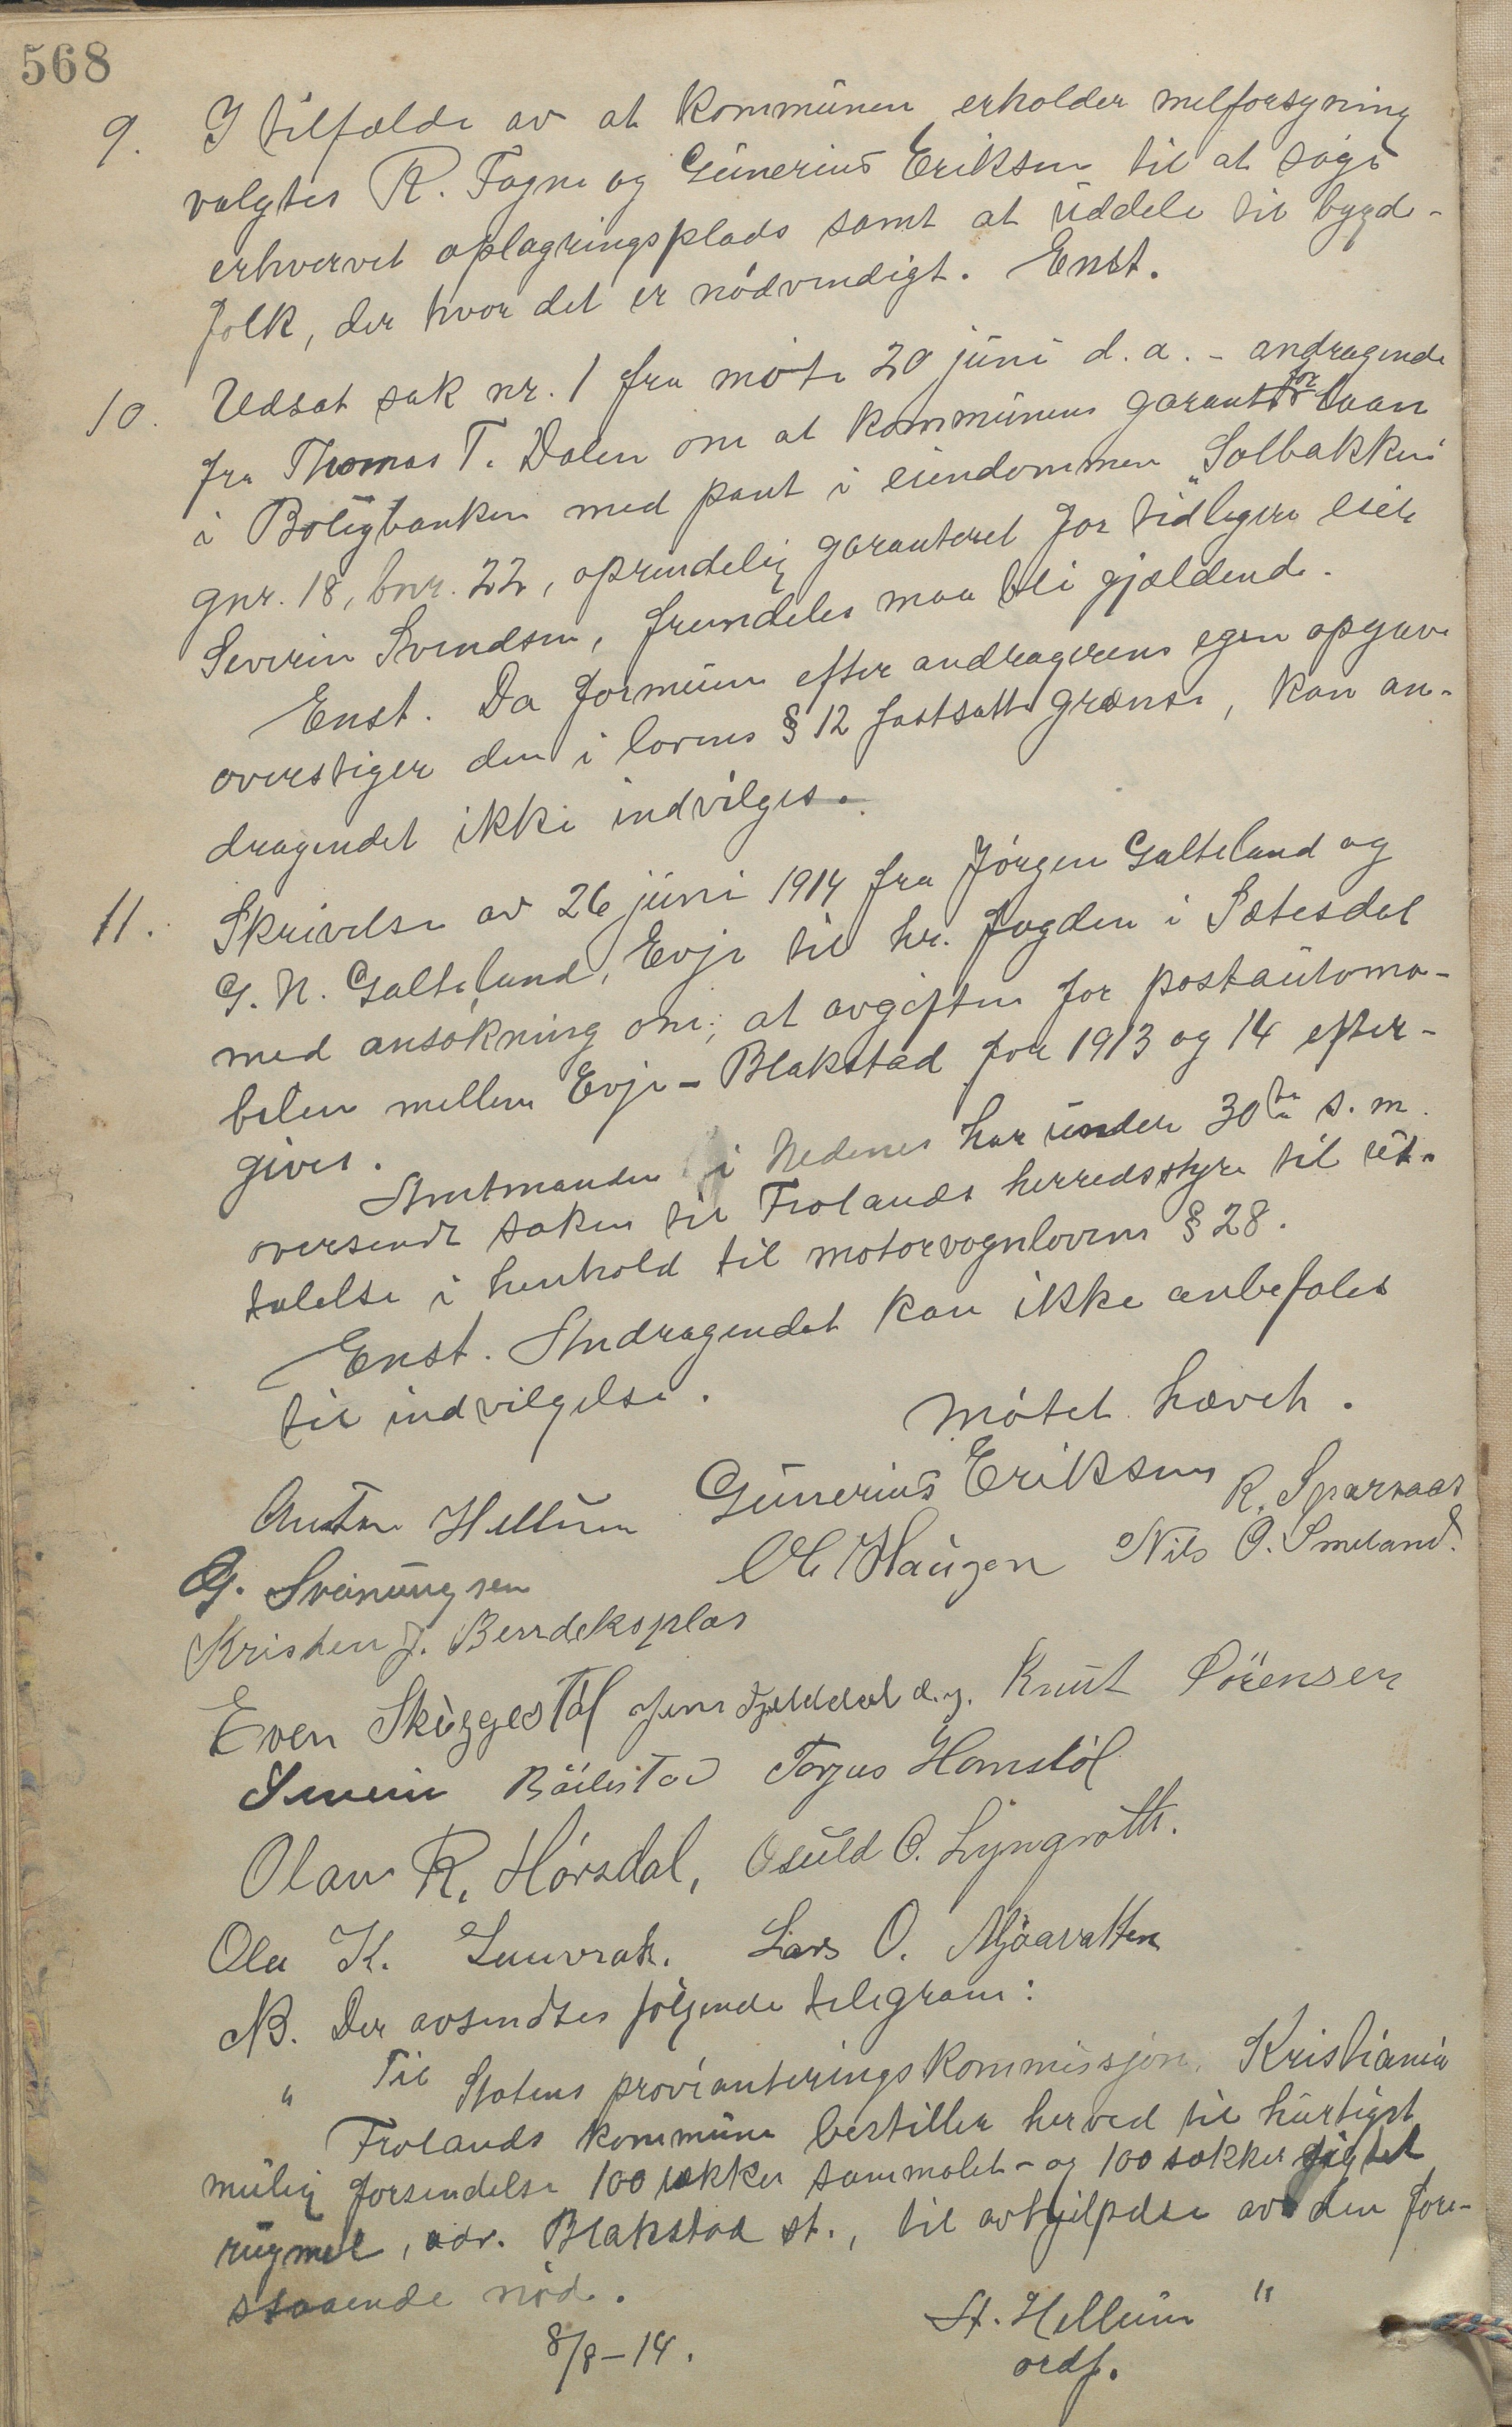 568
9. I tilfælde av at kommunen erholder melforsyning
valgtes R. Fagne og Gunerius Eriksen til at søge
erhvervet oplagringsplads samt at uddele til bygde-
folk, der hvor det er nødvendigt. Enst.
10. Udsat sak nr. 1 fra møte 20 juni d.a. - andragende
fra Thomas T. Dalen om at kommunens garanti for laan
i Boligbanken med pant i eiendommen "Solbakken"
gnr. 18, bnr. 22, oprindelig garanteret for tidligere eier
Severin Svendsen, fremdeles maa bli gjældende.
Enst. Da formuen efter andragerens egen opgave
overstiger den i lovens § 12 fastsatte grænse, kan an-
dragendet ikke indvilges.
11. Skrivelse av 26 juni 1914 fra Jørgen Galteland og
G. N. Galteland, Evje til hr. fogden i Sætesdal
med ansøkning om; at avgiften for postautomo-
bilen mellem Evje - Blakstad for 1913 og 14 efter-
gives.
Amtmanden i Nedenes har under 30te s.m.
oversendt saken til Frolands herredsstyre til ut-
talelse i henhold til motorvognlovens § 28.
Enst. Andragendet kan ikke anbefales
til indvilgelse.
Møtet hævet.
Anton Hellum Gunerius Eriksen R. Sparsaas
G. Sveinungsen Ole Haugen Nils O. Smeland
Kristen J. Bendeksplas
Even Skuggestøl Jens Fjelddal d.y. Knut Sørensen
Severin Bøilestad Torjus Homstøl
Olav R. Hørsdal, Osuld O. Lyngroth.
Ole K. Lauvrak. Lars O. Mjaavatten
NB. Der avsendtes følgende telegram:
" Til Statens provianteringskommissjon, Kristiania
Frolands kommune bestiller herved til hurtigst
mulig forsendelse 100 sækker sammalet - og 100 sækker sigtet
rugmel, adr. Blakstad st., til avhjælpelse av den fore-
staaende nød.
8/8-14. A. Hellum "
ordf.